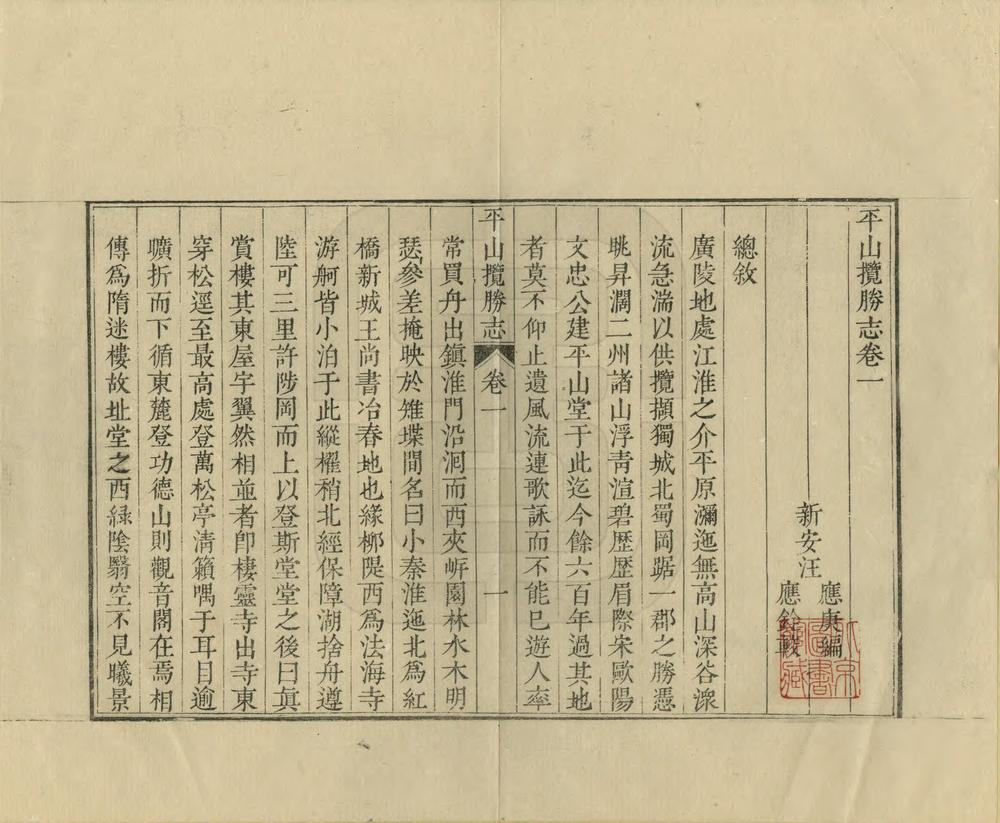 平山攬勝志卷一
新安汪
應庚編
應銓較
總敘
廣陵地處江淮之介平原瀰迤無高山深谷濴
流急湍以供攬擷獨城北蜀岡踞一郡之勝憑
眺昇潤二州諸山浮靑渲碧歷歷眉際宋歐陽
文忠公建平山堂于此迄今餘六百年過其地
者莫不仰止遺風流連歌詠而不能已遊人率
平山攬勝志
卷一
一
常買舟出鎭淮門沿洄而西夾㟁園林水木明
瑟參差掩映於雉堞間名曰小秦淮迤北爲紅
橋新城王尚書冶春地也緣柳隄西爲法海寺
游舸皆小泊于此縱櫂稍北經保障湖捨舟遵
陸可三里許陟岡而上以登斯堂堂之後曰眞
賞樓其東屋宇翼然相並者卽棲靈寺出寺東
穿松逕至最高處登萬松亭淸籟喁于耳目逾
曠折而下循東麓登功德山則觀音閣在焉相
傳爲隋迷樓故址堂之西綠陰翳空不見曦景